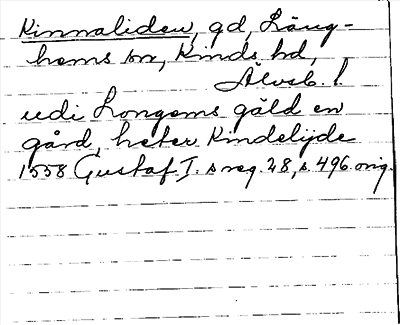 Kinnaliden, gd, Läng-
hems sn, Kinds hd,
Älvsb. l.
udi Longems gäld en
gård, heter Kindelijde
1558 Gustaf I. s reg. 28, s. 496. orig.